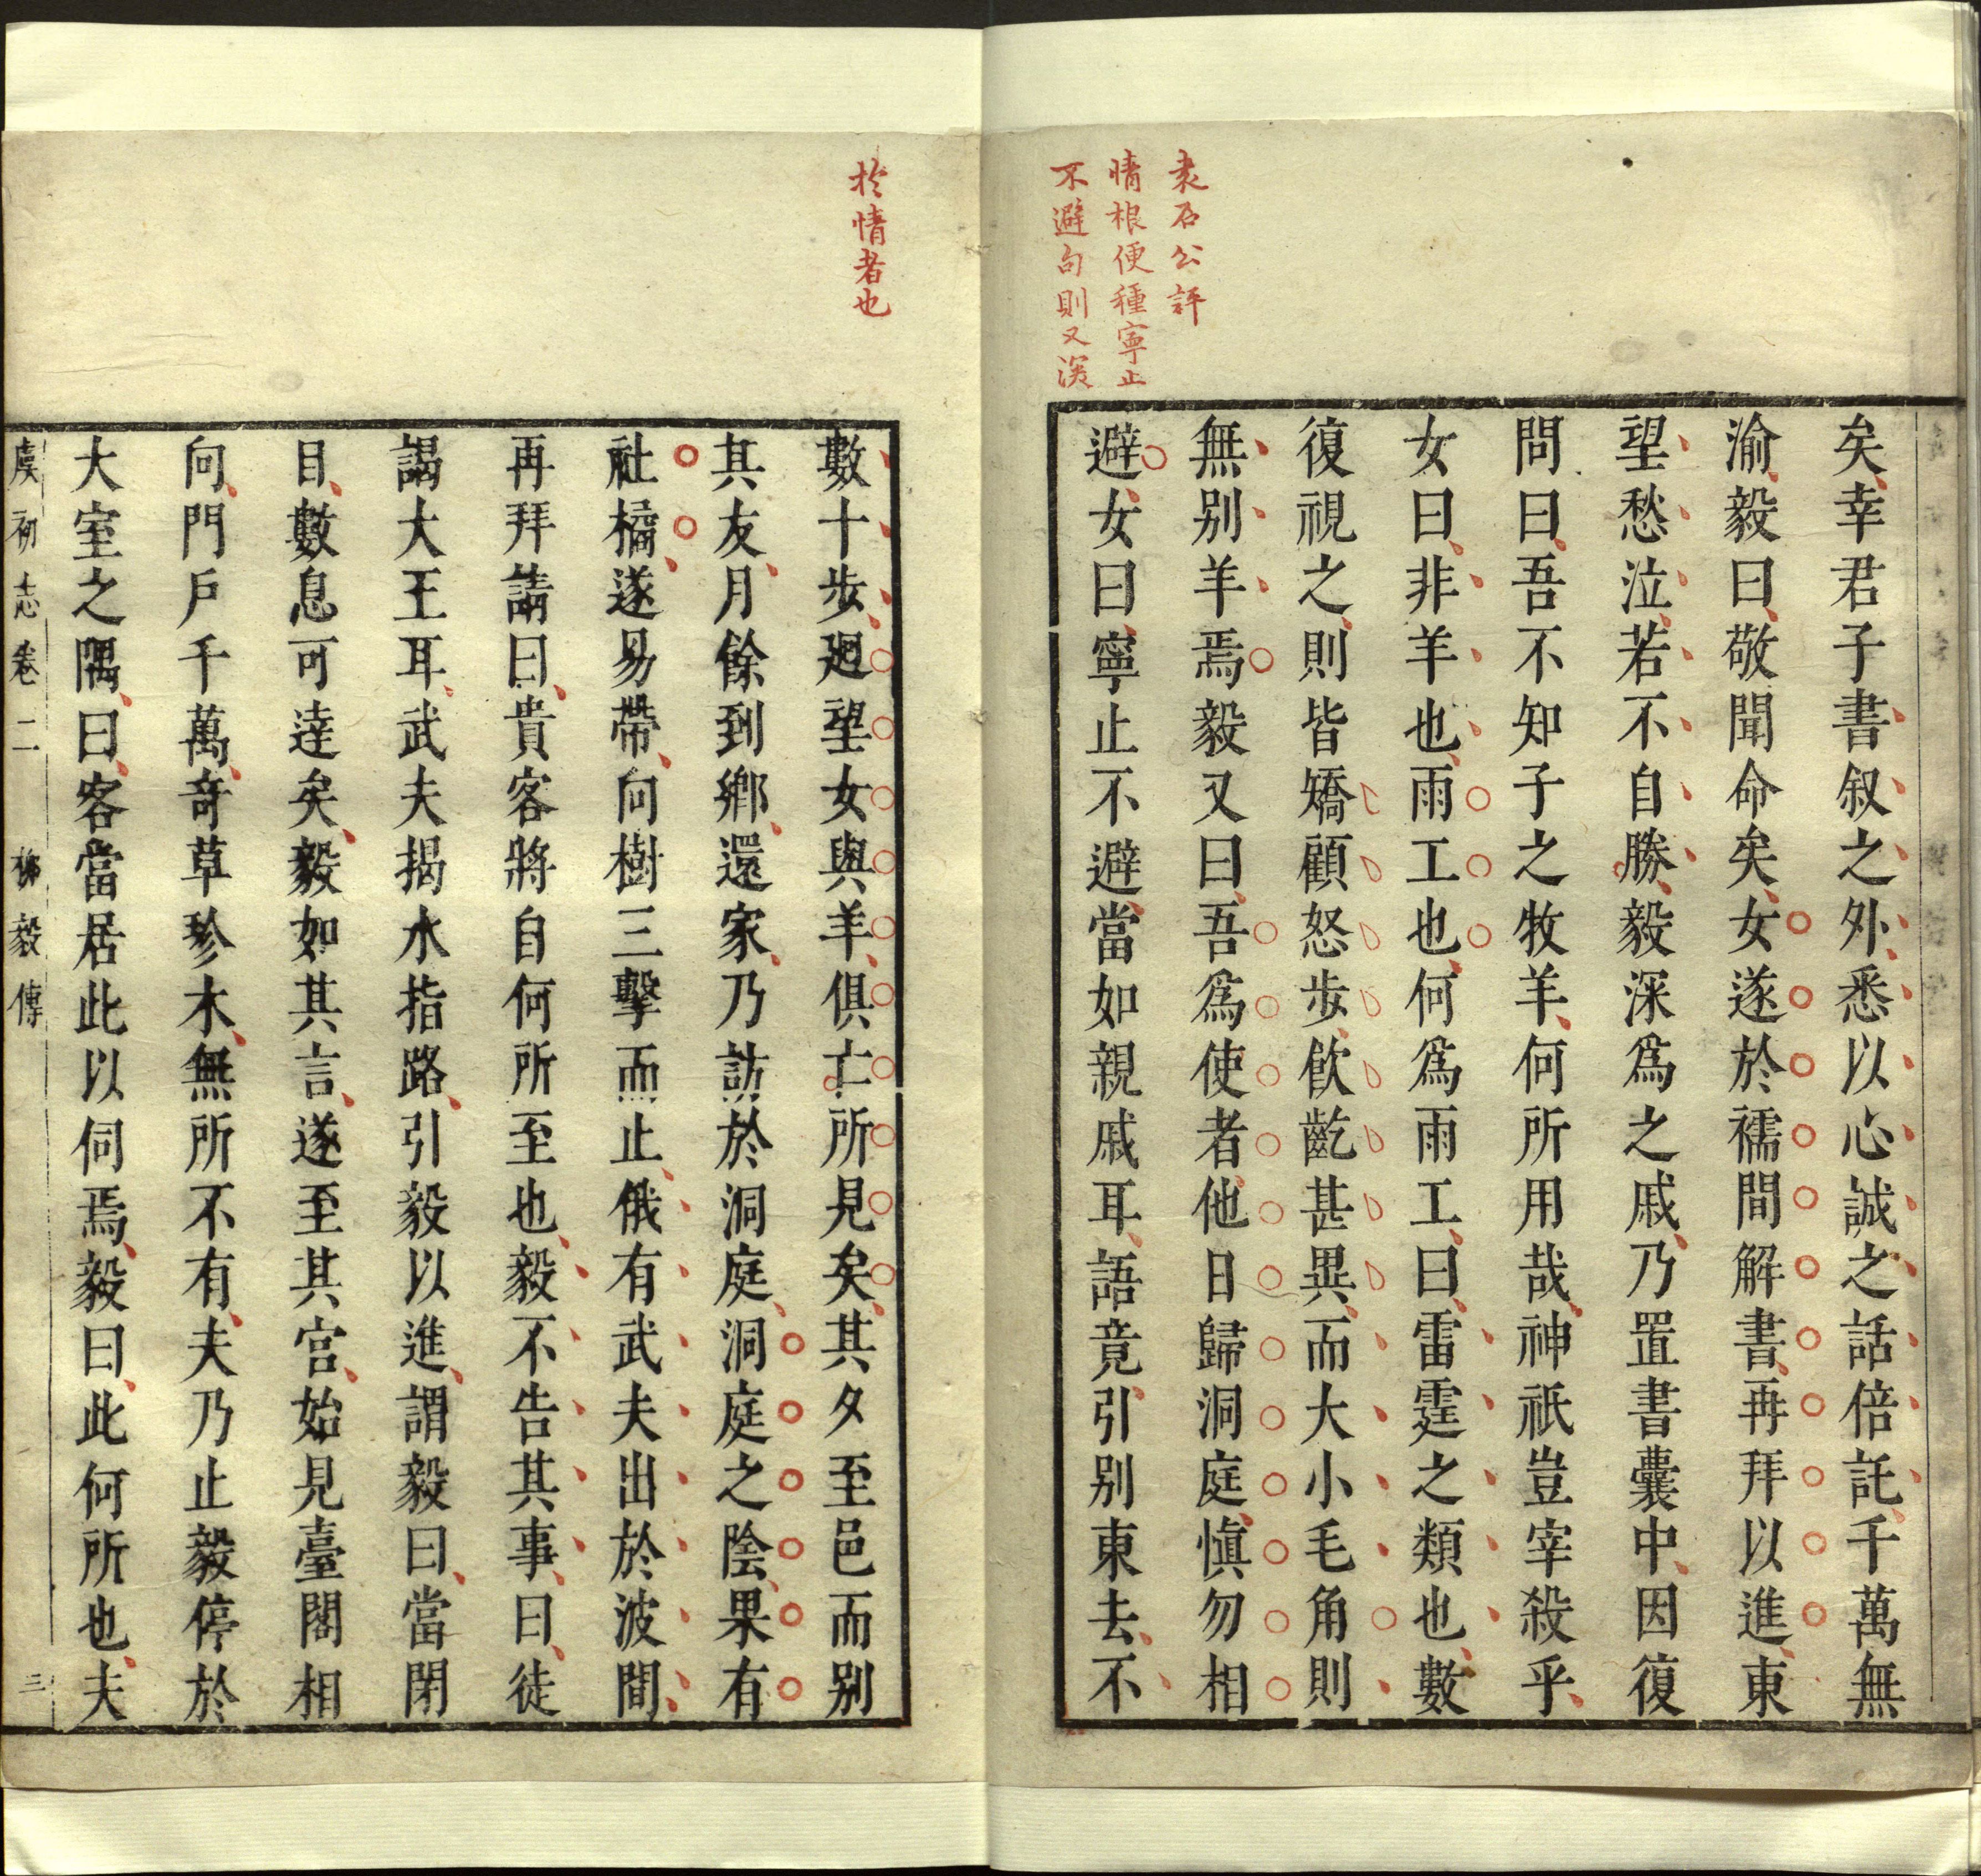 袁石公評
情根便種寧止
不避句則又深
矣幸君子書叙之外悉以心誠之話倍託千萬無
渝毅曰敬聞命矣女遂於襦間解書再拜以進東
望愁泣若不自勝毅深爲之戚乃置書囊中因復
問曰吾不知子之牧羊何所用哉神祇豈宰殺乎
女曰非羊也雨工也何爲雨工曰雷霆之類也數
復視之則皆矯顧怒步飮齕甚異而大小毛角則
無别羊焉毅又曰吾爲使者他日歸洞庭愼勿相
避女曰寧止不避當如親戚耳語竟引别東去不
於情者也
數十步廻望女與羊俱亡所見矣其夕至邑而别
其友月餘到鄉還家乃訪於洞庭洞庭之陰果有
社橘遂易帶向樹三擊而止俄有武夫出於波間
再拜請曰貴客將自何所至也毅不告其事曰徒
謁大王耳武夫揭水指路引毅以進謂毅曰當閉
目數息可達矣毅如其言遂至其宮始見臺閣相
向門戶千萬奇草珍木無所不有夫乃止毅停於
大室之隅曰客當居此以伺焉毅曰此何所也夫
虞初志卷二 柳毅傳 三